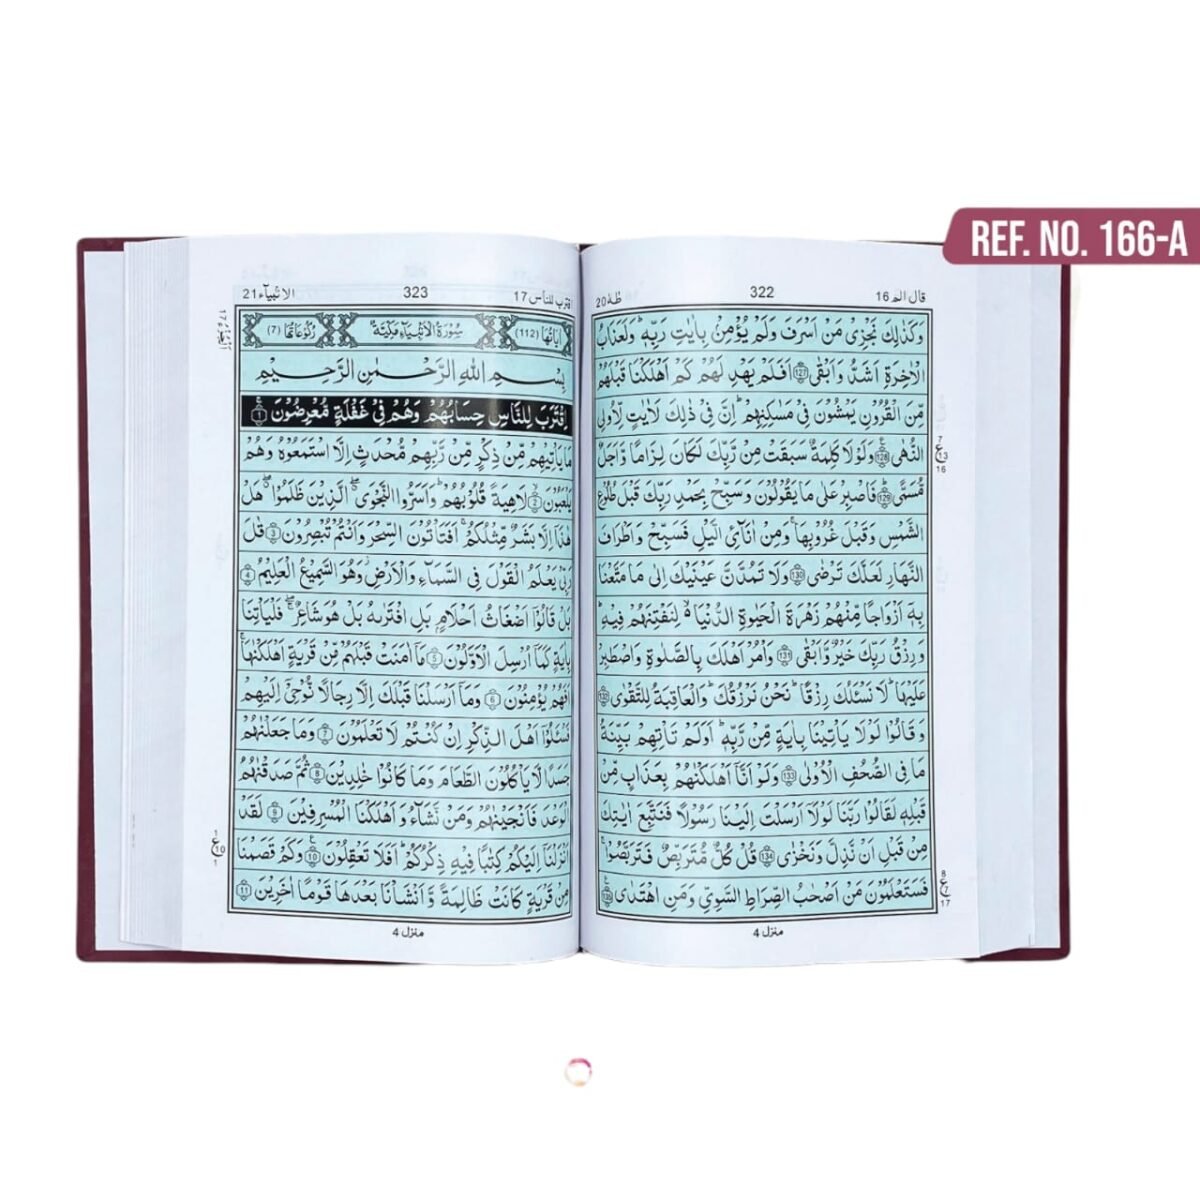 REF. NO. 166-A
قال الم 16
322
طٰهٰ 20
وَكَذٰلِكَ نَجْزِىْ مَنْ اَسْرَفَ وَلَمْ يُؤْمِنْۢ بِاٰيٰتِ رَبِّهٖ ؕ وَلَعَذَابُ
الْاٰخِرَةِ اَشَدُّ وَاَبْقٰى ﴿127﴾ اَفَلَمْ يَهْدِ لَهُمْ كَمْ اَهْلَكْنَا قَبْلَهُمْ
مِّنَ الْقُرُوْنِ يَمْشُوْنَ فِىْ مَسٰكِنِهِمْ ؕ اِنَّ فِىْ ذٰلِكَ لَاٰيٰتٍ لِّاُولِى
النُّهٰى ﴿128﴾ وَلَوْلَا كَلِمَةٌ سَبَقَتْ مِنْ رَّبِّكَ لَكَانَ لِزَامًا وَّاَجَلٌ
7
ع 13
16
مُّسَمًّى ﴿129﴾ فَاصْبِرْ عَلٰى مَا يَقُوْلُوْنَ وَسَبِّحْ بِحَمْدِ رَبِّكَ قَبْلَ طُلُوْعِ
الشَّمْسِ وَقَبْلَ غُرُوْبِهَا ۚ وَمِنْ اٰنَآئِ الَّيْلِ فَسَبِّحْ وَاَطْرَافَ
النَّهَارِ لَعَلَّكَ تَرْضٰى ﴿130﴾ وَلَا تَمُدَّنَّ عَيْنَيْكَ اِلٰى مَا مَتَّعْنَا
بِهٖۤ اَزْوَاجًا مِّنْهُمْ زَهْرَةَ الْحَيٰوةِ الدُّنْيَا ۙ لِنَفْتِنَهُمْ فِيْهِ ؕ
وَرِزْقُ رَبِّكَ خَيْرٌ وَّاَبْقٰى ﴿131﴾ وَاْمُرْ اَهْلَكَ بِالصَّلٰوةِ وَاصْطَبِرْ
عَلَيْهَا ؕ لَا نَسْئَلُكَ رِزْقًا ؕ نَحْنُ نَرْزُقُكَ ؕ وَالْعَاقِبَةُ لِلتَّقْوٰى ﴿132﴾
وَقَالُوْا لَوْلَا يَاْتِيْنَا بِاٰيَةٍ مِّنْ رَّبِّهٖ ؕ اَوَلَمْ تَاْتِهِمْ بَيِّنَةُ
مَا فِى الصُّحُفِ الْاُوْلٰى ﴿133﴾ وَلَوْ اَنَّاۤ اَهْلَكْنٰهُمْ بِعَذَابٍ مِّنْ
قَبْلِهٖ لَقَالُوْا رَبَّنَا لَوْلَاۤ اَرْسَلْتَ اِلَيْنَا رَسُوْلًا فَنَتَّبِعَ اٰيٰتِكَ
مِنْ قَبْلِ اَنْ نَّذِلَّ وَنَخْزٰى ﴿134﴾ قُلْ كُلٌّ مُّتَرَبِّصٌ فَتَرَبَّصُوْا ۚ
فَسَتَعْلَمُوْنَ مَنْ اَصْحٰبُ الصِّرَاطِ السَّوِىِّ وَمَنِ اهْتَدٰى ﴿135﴾
8
ع 7
17
منزل 4
اقترب للناس 17
323
الانبياء 21
اٰيَاتُهَا (112)
سُوْرَةُ الْاَنْبِيَآءِ مَكِّيَّةٌ
رُكُوْعَاتُهَا (7)
بِسْمِ اللّٰهِ الرَّحْمٰنِ الرَّحِيْمِ
اِقْتَرَبَ لِلنَّاسِ حِسَابُهُمْ وَهُمْ فِىْ غَفْلَةٍ مُّعْرِضُوْنَ ﴿1﴾
مَا يَاْتِيْهِمْ مِّنْ ذِكْرٍ مِّنْ رَّبِّهِمْ مُّحْدَثٍ اِلَّا اسْتَمَعُوْهُ وَهُمْ
يَلْعَبُوْنَ ﴿2﴾ لَاهِيَةً قُلُوْبُهُمْ ؕ وَاَسَرُّوا النَّجْوَى ۖ الَّذِيْنَ ظَلَمُوْا ۖ هَلْ
هٰذَاۤ اِلَّا بَشَرٌ مِّثْلُكُمْ ۚ اَفَتَاْتُوْنَ السِّحْرَ وَاَنْتُمْ تُبْصِرُوْنَ ﴿3﴾ قٰلَ
رَبِّىْ يَعْلَمُ الْقَوْلَ فِى السَّمَآءِ وَالْاَرْضِ وَهُوَ السَّمِيْعُ الْعَلِيْمُ ﴿4﴾
بَلْ قَالُوْۤا اَضْغَاثُ اَحْلَامٍۢ بَلِ افْتَرٰىهُ بَلْ هُوَ شَاعِرٌ ۖ فَلْيَاْتِنَا
بِاٰيَةٍ كَمَاۤ اُرْسِلَ الْاَوَّلُوْنَ ﴿5﴾ مَاۤ اٰمَنَتْ قَبْلَهُمْ مِّنْ قَرْيَةٍ اَهْلَكْنٰهَا ۚ
اَفَهُمْ يُؤْمِنُوْنَ ﴿6﴾ وَمَاۤ اَرْسَلْنَا قَبْلَكَ اِلَّا رِجَالًا نُّوْحِىْۤ اِلَيْهِمْ
فَسْئَلُوْۤا اَهْلَ الذِّكْرِ اِنْ كُنْتُمْ لَا تَعْلَمُوْنَ ﴿7﴾ وَمَا جَعَلْنٰهُمْ
جَسَدًا لَّا يَاْكُلُوْنَ الطَّعَامَ وَمَا كَانُوْا خٰلِدِيْنَ ﴿8﴾ ثُمَّ صَدَقْنٰهُمُ
الْوَعْدَ فَاَنْجَيْنٰهُمْ وَمَنْ نَّشَآءُ وَاَهْلَكْنَا الْمُسْرِفِيْنَ ﴿9﴾ لَقَدْ
اَنْزَلْنَاۤ اِلَيْكُمْ كِتٰبًا فِيْهِ ذِكْرُكُمْ ؕ اَفَلَا تَعْقِلُوْنَ ﴿10﴾ وَكَمْ قَصَمْنَا
1
ع 10
1
مِنْ قَرْيَةٍ كَانَتْ ظَالِمَةً وَّاَنْشَاْنَا بَعْدَهَا قَوْمًا اٰخَرِيْنَ ﴿11﴾
منزل 4